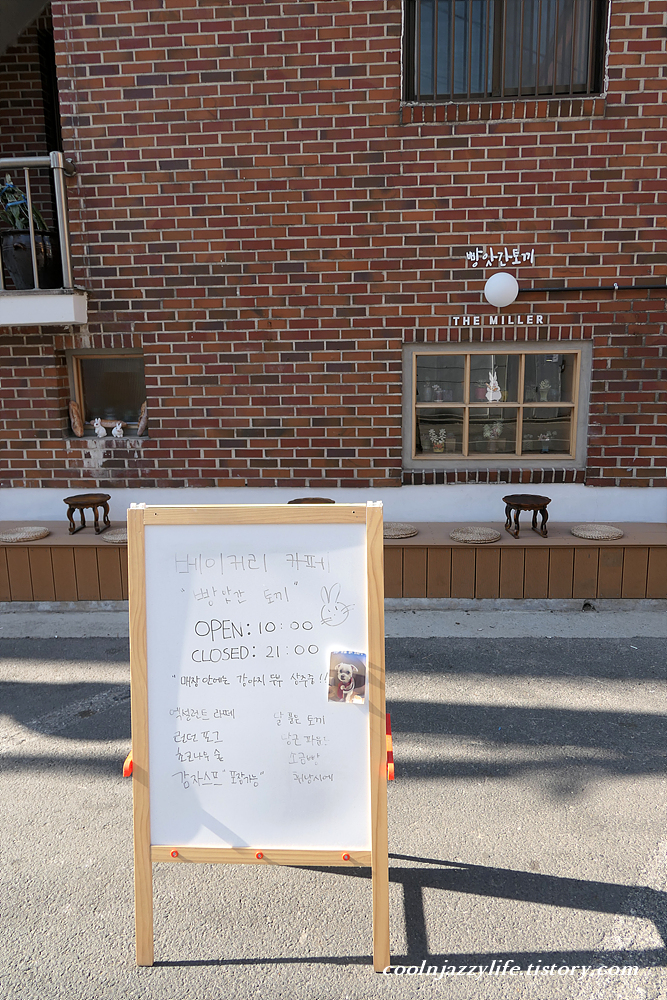 빵앗간토끼
THE MILLER
베이커리 카페
"빵앗간 토끼"
OPEN: 10:00
CLOSED: 21:00
"매장 안에는 강아지 두부 상주중!!
엑설런트 라떼
런던 포그
초코나무 숲
감자스프 "포장가능"
달 품은 토끼
당근
소금빵
휘낭시에
coolnjazzylife.tistory.com